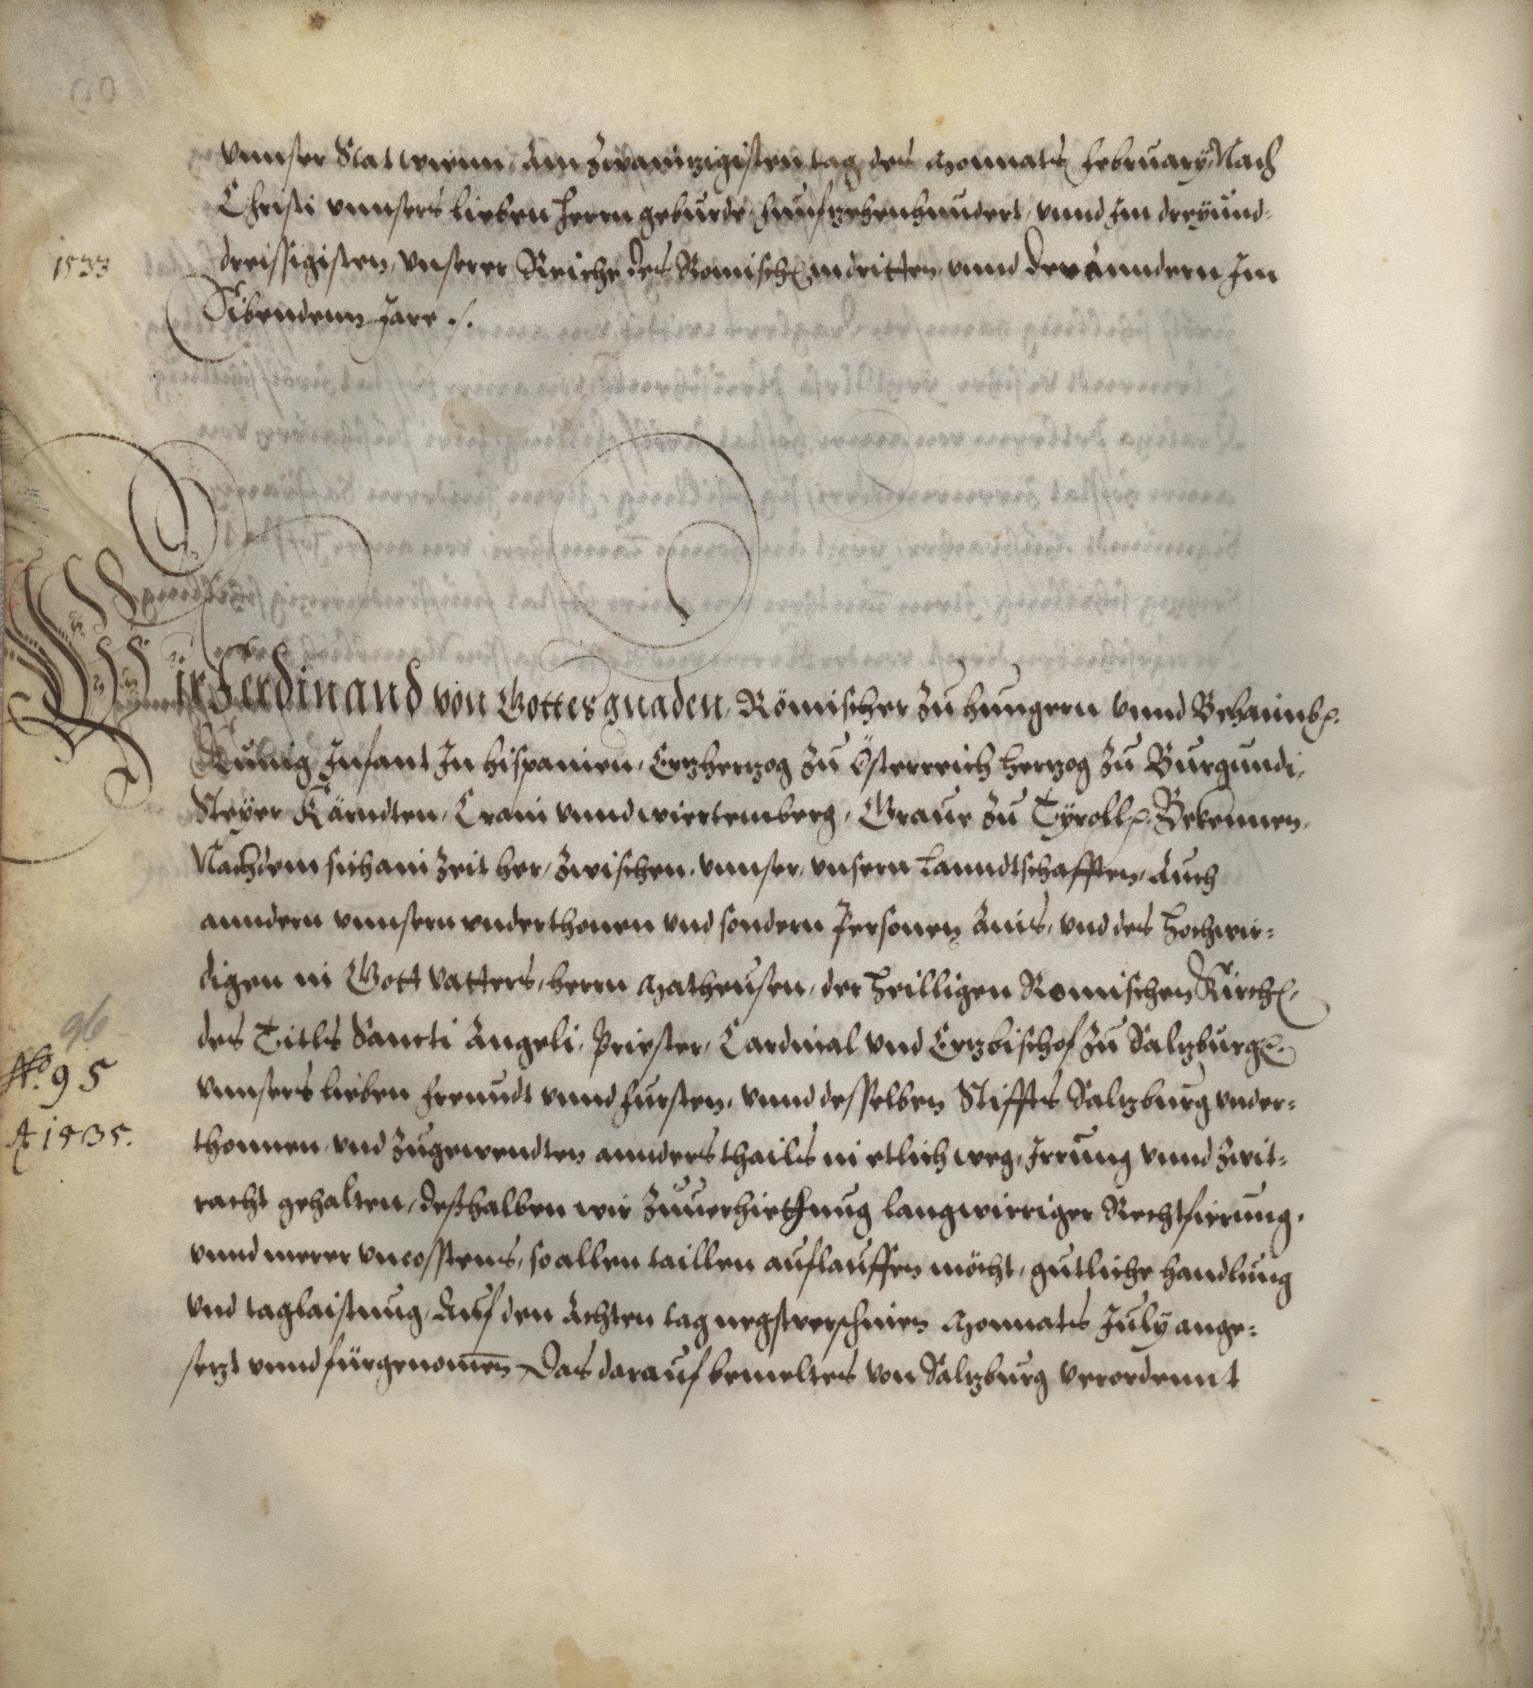 vnnser Stat wienn, Am zwaintzigisten tag des Monnats February, Nach
Christi vnnsers lieben Herrn geburde, funfzehenhundert, vnnd Im dreyund-
1533
dreissigisten, vnserer Reiche des Romischen im dritten, vnnd der Anndern Im
Sibendenn Jare /.
Wir Ferdinand von Gottes gnaden, Römischer zu hungern vnnd Behaimb
Kunig Infant In hispanien, Ertzhertzog zu Österreich hertzog zu Burgundi,
Steyer Kärndten, Crain vnnd wiertemberg, Graue zu Tyroll Bekennen,
Nachdem sich ain zeit her, zwischen, vnnser, vnsern Lanndtschafften, Auch
anndern vnnsern vnderthonen vnd sondern Personen Ains, vnd des Hochwir-
digen in Gott vatters, herrn Matheusen, der Heilligen Romischen Kirchen,
des Titls Sancti Angeli, Priester, Cardinal vnd Ertzbischof zu Salzburg
96
No. 95
vnnsers lieben freundt vnnd fursten, vnnd desselben Stiffts Saltzburg vnder-
Ao 1535.
thonnen vnd zugewendten annders thails in etlich weg, Irrung vnnd zwit-
racht gehalten, deßhalben wir zuuerhiettung langwirriger Rechtfierung,
vnnd merer vncosstens, so allen taillen auflauffen möcht, gutliche handlung
vnd taglaistung, Auf den Achten tag negstverschinen Monnats July ange-
setzt vnnd fürgenomen Das darauf bemeltes von Saltzburg verordennt